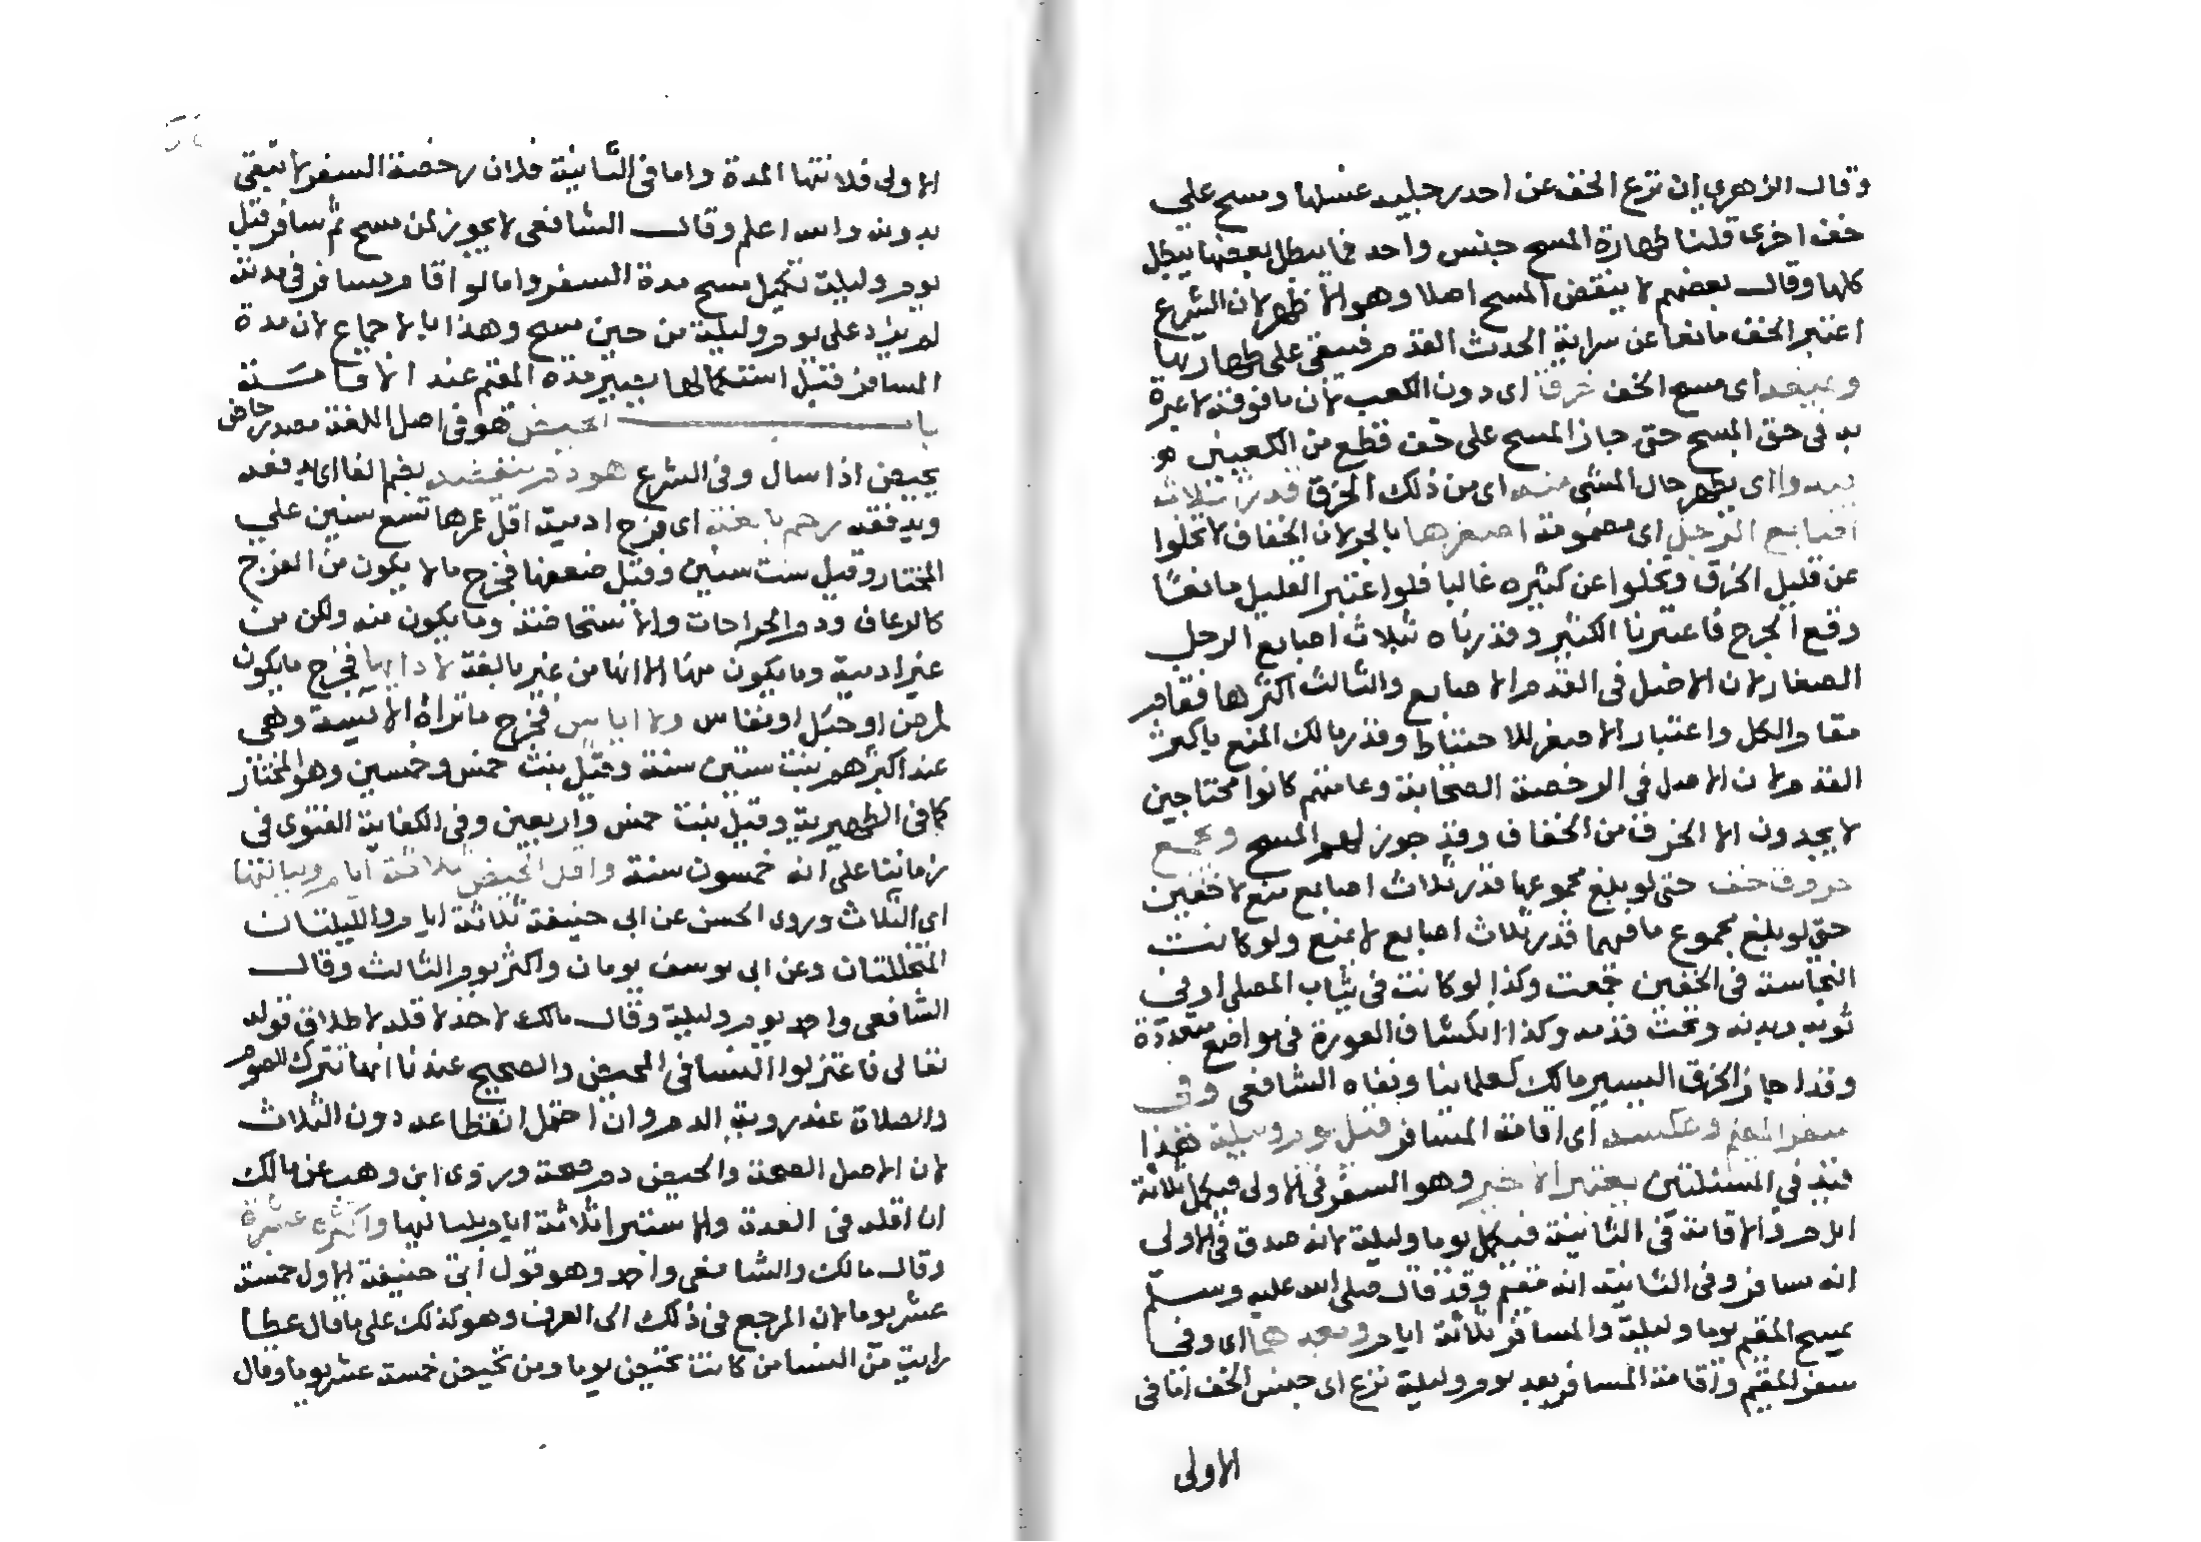 وقال الزهري ان نزع الخف عن احد رجليه غسلها ومسح على
خف اخرى قلنا طهارة المسح جنس واحد فما يبطل بعضها يبطل
كلها وقال بعضهم لا ينقض المسح اصلا وهو الاظهر لان الشرع
اعتبر الخف مانعا عن سراية الحدث القدم فيبقى على طهارتها
اى مسح الخف خرق اى دون الكعب لان ما فوقه لا عبرة
به فى حق المسح حتى جاز المسح على خف قطع من الكعبين هو
يبدوا اى يظهر حال المشى منه اى من ذلك الخرق قدر ثلاث
اصابع الرجل اى مضمومة اصغرها بالجر لان الخفاف لا تخلوا
عن قليل الخرق وتخلوا عن كثيره غالبا فلو اعتبر القليل مانعا
وقع الحرج فاعتبرنا الكثير وقدرناه بثلاث اصابع الرجل
الصغار لان الاصل فى القدم الاصابع والثلاث اكثرها فقام
مقام الكل واعتبار الاصغر للاحتياط وقدر مالك المنع باكثر
القدم لان الاصل فى الرخصة الصحابة وعامتهم كانوا محتاجين
لا يجدون الا الخرق من الخفاف وقد جوز لهم المسح ويجمع
خروق خف حتى لو بلغ مجموعها قدر ثلاث اصابع منع لا خفين
حتى لو بلغ مجموع ما فيهما قدر ثلاث اصابع لا يمنع ولو كانت
النجاسة فى الخفين جمعت وكذا لو كانت فى ثياب المصلى او فى
ثوبه وبدنه وتحت قدمه وكذا انكشاف العورة فى مواضع متعددة
وقد اجاز الخرق اليسير مالك كعلمائنا ونفاه الشافعى وفى
سفر المقيم وعكسه اى اقامة المسافر قبل يوم وليلة بهذا
قيد فى المسئلتين يعتبر الاخير وهو السفر فى الاولى فيكمل ثلاثة
ايام والاقامة فى الثانية فيكمل يوما وليلة لانه صدق فى الاولى
انه مسافر وفى الثانية انه مقيم وقد قال صلى الله عليه وسلم
يمسح المقيم يوما وليلة والمسافر ثلاثة ايام وبعدها اى وفى
سفر المقيم واقامة المسافر بعد يوم وليلة نزع اى جنس الخف اما فى
الاولى
الاولى فلانتها المدة واما فى الثانية فلان رخصة السفر لا تبقى
بدونه والله اعلم وقال الشافعى لا يجوز لمن مسح ثم سافر قبل
يوم وليلة تكميل مسح مدة السفر واما لو اقام مسافر فى مدته
لم يزد على يوم وليلة من حين مسح وهذا بالاجماع لان مدة
السافر قبل استكمالها يصير مدة المقيم عند الاقامة
باب الحيض هو فى اصل اللغة مصدر حاض
يحيض اذا سال وفى الشرع هو دم ينفضه بضم الفا اى يدفعه
ويدفقه رحم بالغة اى فرج ادمية اقل عمرها تسع سنين على
المختار وقيل ست سنين وقيل ضعفها فخرج ما لا يكون من الفرج
كالرعاف ودم الجراحات والاستحاضة وما يكون منه ولكن من
غير ادمية وما يكون منها الا انها من غير بالغة لا دا بها فخرج ما يكون
لمرض او حبل او نفاس ولا اياس فخرج ما تراه الآئيسة وهى
عند اكثرهم بنت ستين سنة وقيل بنت خمس وخمسين وهو المختار
كما فى الظهيرية وقيل بنت خمس واربعين وفى الكفاية الفتوى فى
زماننا على انه خمسون سنة واقل الحيض ثلاثة ايام ولياليها
اى الثلاث وروى الحسن عن ابى حنيفة ثلاثة ايام والليلتان
المتخللتان وعن ابى يوسف يومان واكثر يوم الثالث وقال
الشافعى واحمد يوم وليلة وقال مالك لا حد لاقله لاطلاق قوله
تعالى فاعتزلوا النسا فى المحيض والصحيح عندنا انها تترك الصوم
والصلاة عند روية الدم وان احتمل انقطاعه دون الثلاث
لان الاصل الصحة والحيض دم صحة وروى ابن وهب عن مالك
ان اقله فى العدة والاستبرا ثلاثة ايام بلياليها واكثره عشرة
وقال مالك والشافعى واحمد وهو قول ابى حنيفة الاول خمسة
عشر يوما لان المرجع فى ذلك الى العرف وهو كذلك على ما قال عطا
رايت من النسا من كانت تحيض يوما ومن تحيض خمسة عشر يوما وقال